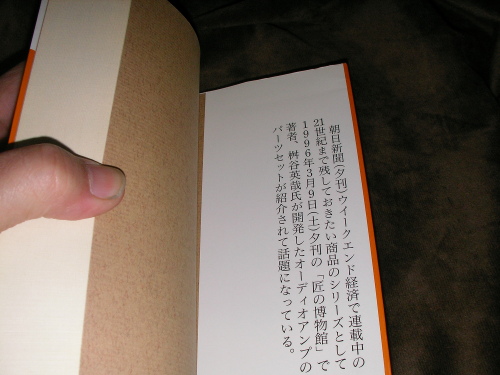 朝日新聞(夕刊)ウイークエンド経済で連載中の
21世紀まで残しておきたい商品のシリーズとして
1996年3月9日(土)夕刊の「匠の博物館」で
著者、桝谷英哉氏が開発したオーディオアンプの
パーツセットが紹介されて話題になっている。